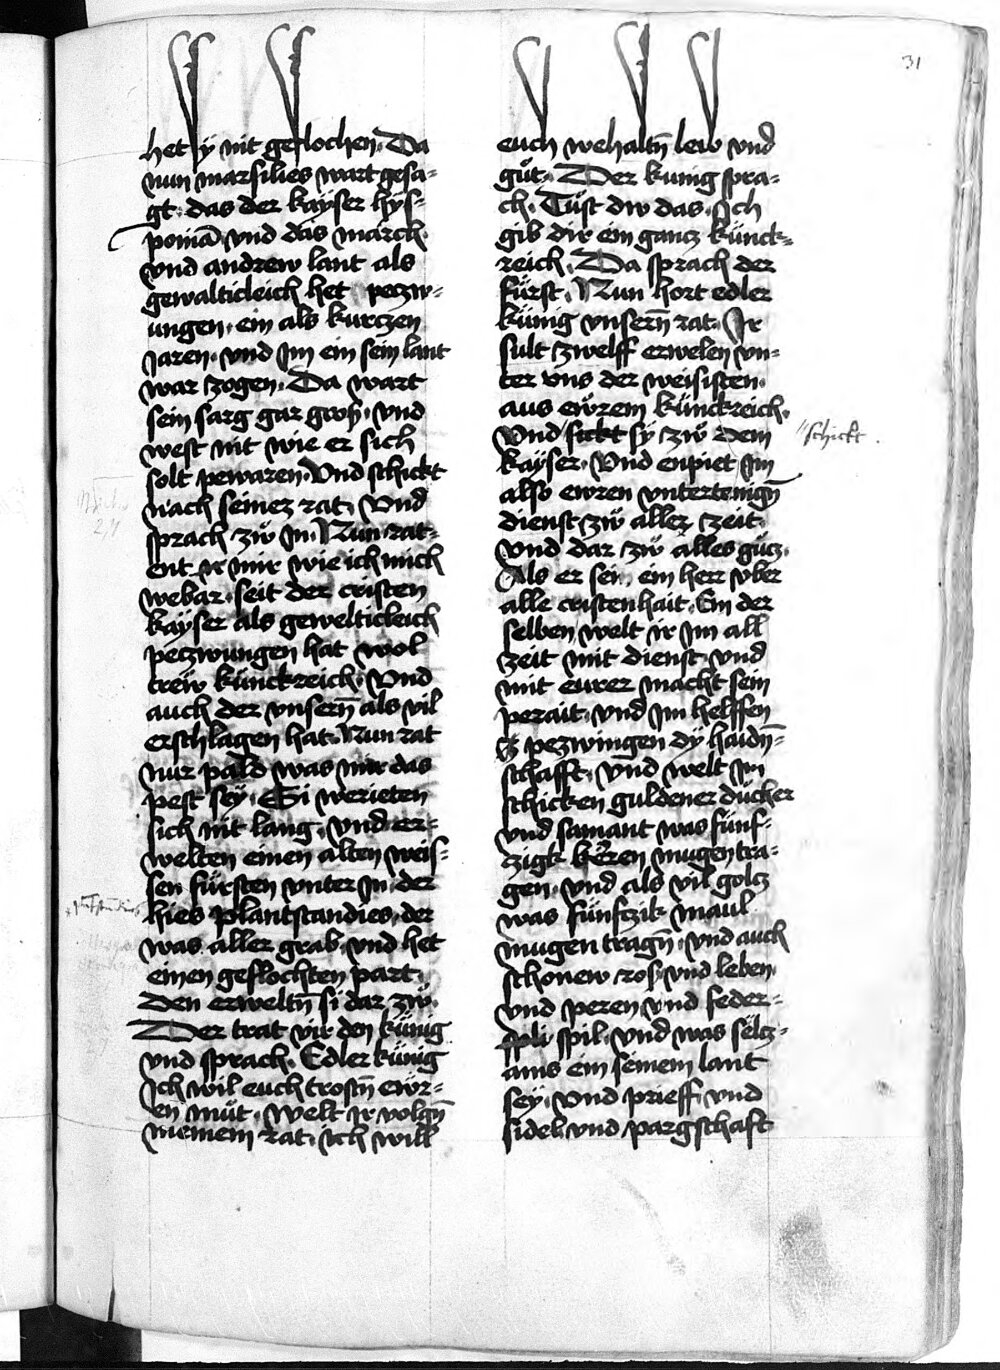 31
het sy nit geflochen. Da
nun marsilies wart gesa-
gt. das der kayser hys-
ponia. vnd das march.
vnd andrew lant als
gewalticleich het peczw-
ungen. ein als kurczen
jaren. vnd jm ein sein lant
war zogen. Da wart
sein sarg gar groß. vnd
west nit wie er sich
solt pewaren. Vnd schickt
nach seinez rat. Vnd
sprach zw jn. Nun rat-
ent ir mir wie ich mich
webar. seit der cristen
kayser als gewelticleich
peczwungen hat wol
trew kunckreich. Vnd
auch der vnsern als vil
erschlagen hat. Nun rat
nur pald was mir das
pest sey. Si werieten
sich nit lang. vnd er-
welten einen alten weis-
sen fürsten vnter jn. der
hies plantstandies. der
was aller grab. vnd het
einen geflochten part.
Den erweltn si dar zw.
Der trat vür den künig
vnd sprach. Edler künig
Ich wil euch trostn ewr-
en müt. welt jr volgn
meinem rat. ich will
euch wehaltn leib vnd
güt. Der kunig spra-
ch. Tüst dw das. Ich
gib dir ein gancz künck-
reich. Da sprach der
fürst. Nun hort edler
künig vnsern rat. Ir
sult zwelff erwelen vn-
ter vns der weisisten.
aus ewrem künckreich.
Vnd sickt sy zw dem
"schickt.
kayser. Vnd enpiet jm
also ewren vntertenign
dienst zw aller zeit.
Vnd dar zw alles gücz.
Als er sei. ein herr vber
alle cristenhait. Ein der
selben welt ir jm all
zeit mit dienst vnd
mit eurer macht sein
perait. vnd jm helffen
cz pezwingen dy haidn-
schafft. vnd welt jm
schicken guldener dücher
vnd samant was fünf-
zigk keren mugen tra-
gen. vnd als vil golcz
was fünfczik maul
mugen tragn. vnd auch
schonew ros. vnd leben.
vnd peren vnd feder-
spil. vnd was selcz-
ams ein seinem lant
sey. vnd prieff. vnd
sidel vnd pargschaft